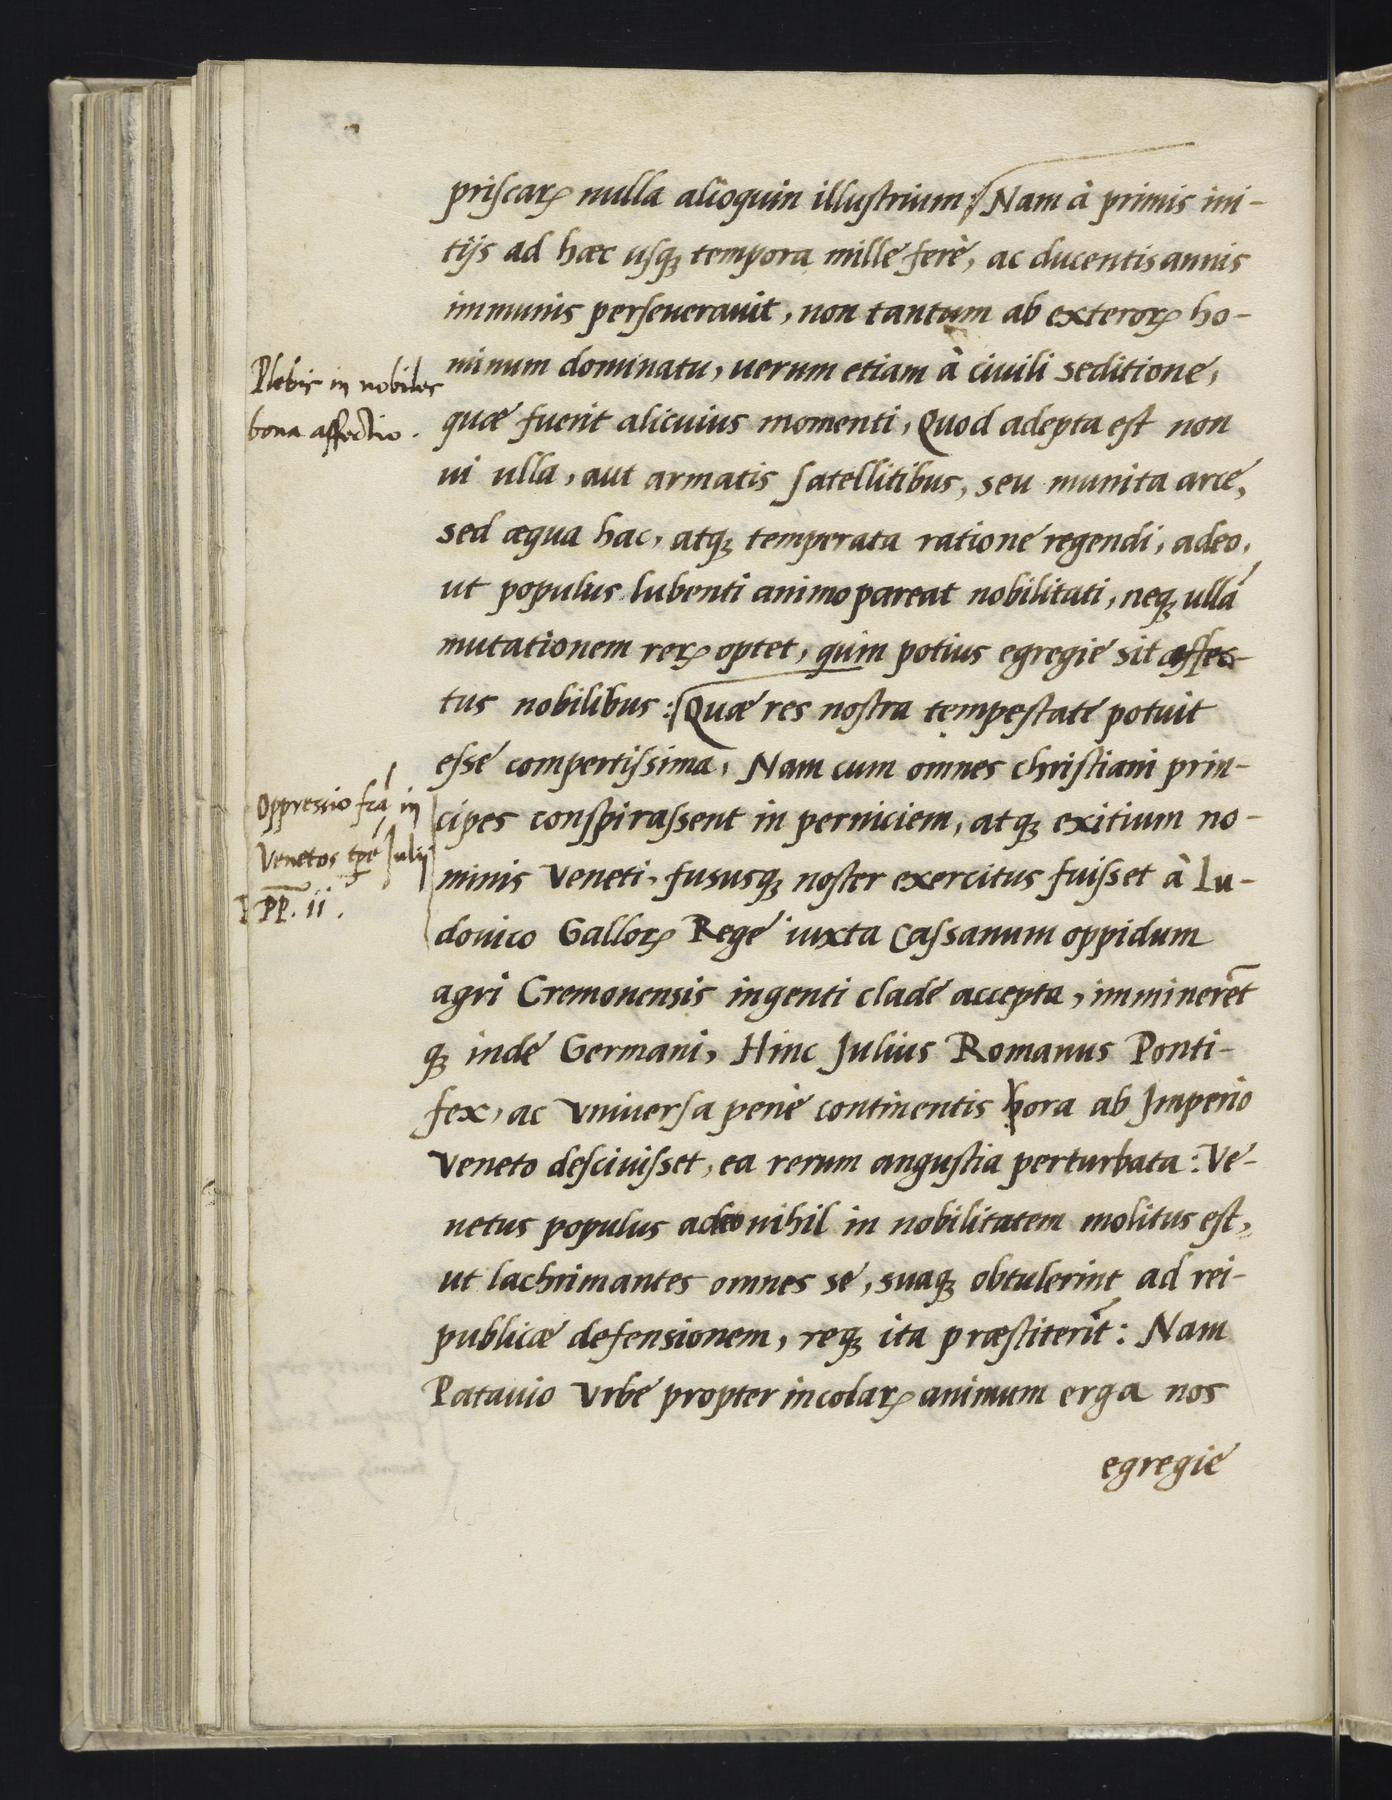 priscarꝝ nulla alioquin illustrium: Nam à primis ini-
tijs ad hæc usqꝫ tempora mille ferè, ac ducentis annis
immunis perseuerauit, non tantum ab exterorꝝ ho-
Plebis in nobiles
bona affectio.
minum dominatu, uerum etiam à ciuili seditione,
quæ fuerit alicuius momenti, Quod adepta est non
ui ulla, aut armatis satellitibus, seu munita arce,
sed æqua hac, atqꝫ temperata ratione regendi, adeo,
ut populus lubenti animo pareat nobilitati, neqꝫ ullā
mutationem rerꝝ optet, quin potius egregie sit affec-
tus nobilibus: Quæ res nostra tempestate potuit
esse compertissima, Nam cum omnes christiani prin-
Oppressio fcā in
Venetos tpē Iulij
PP. ii.
cipes conspirassent in perniciem, atqꝫ exitium no-
minis Veneti, fususqꝫ noster exercitus fuisset à Lu-
douico Gallorꝝ Rege iuxta Cassanum oppidum
agri Cremonensis ingenti clade accepta, immineret̄
qꝫ inde Germani, Hinc Julius Romanus Ponti-
fex, ac Vniuersa penè continentis hora ab Imperio
Veneto desciuisset, ea rerum angustia perturbata: Ve-
netus populus adeo nihil in nobilitatem molitus est,
ut lachrimantes omnes se, suaqꝫ obtulerint ad rei-
publicæ defensionem, reqꝫ ita præstiterīt: Nam
Patauio Vrbe propter incolarꝝ animum erga nos
egregie